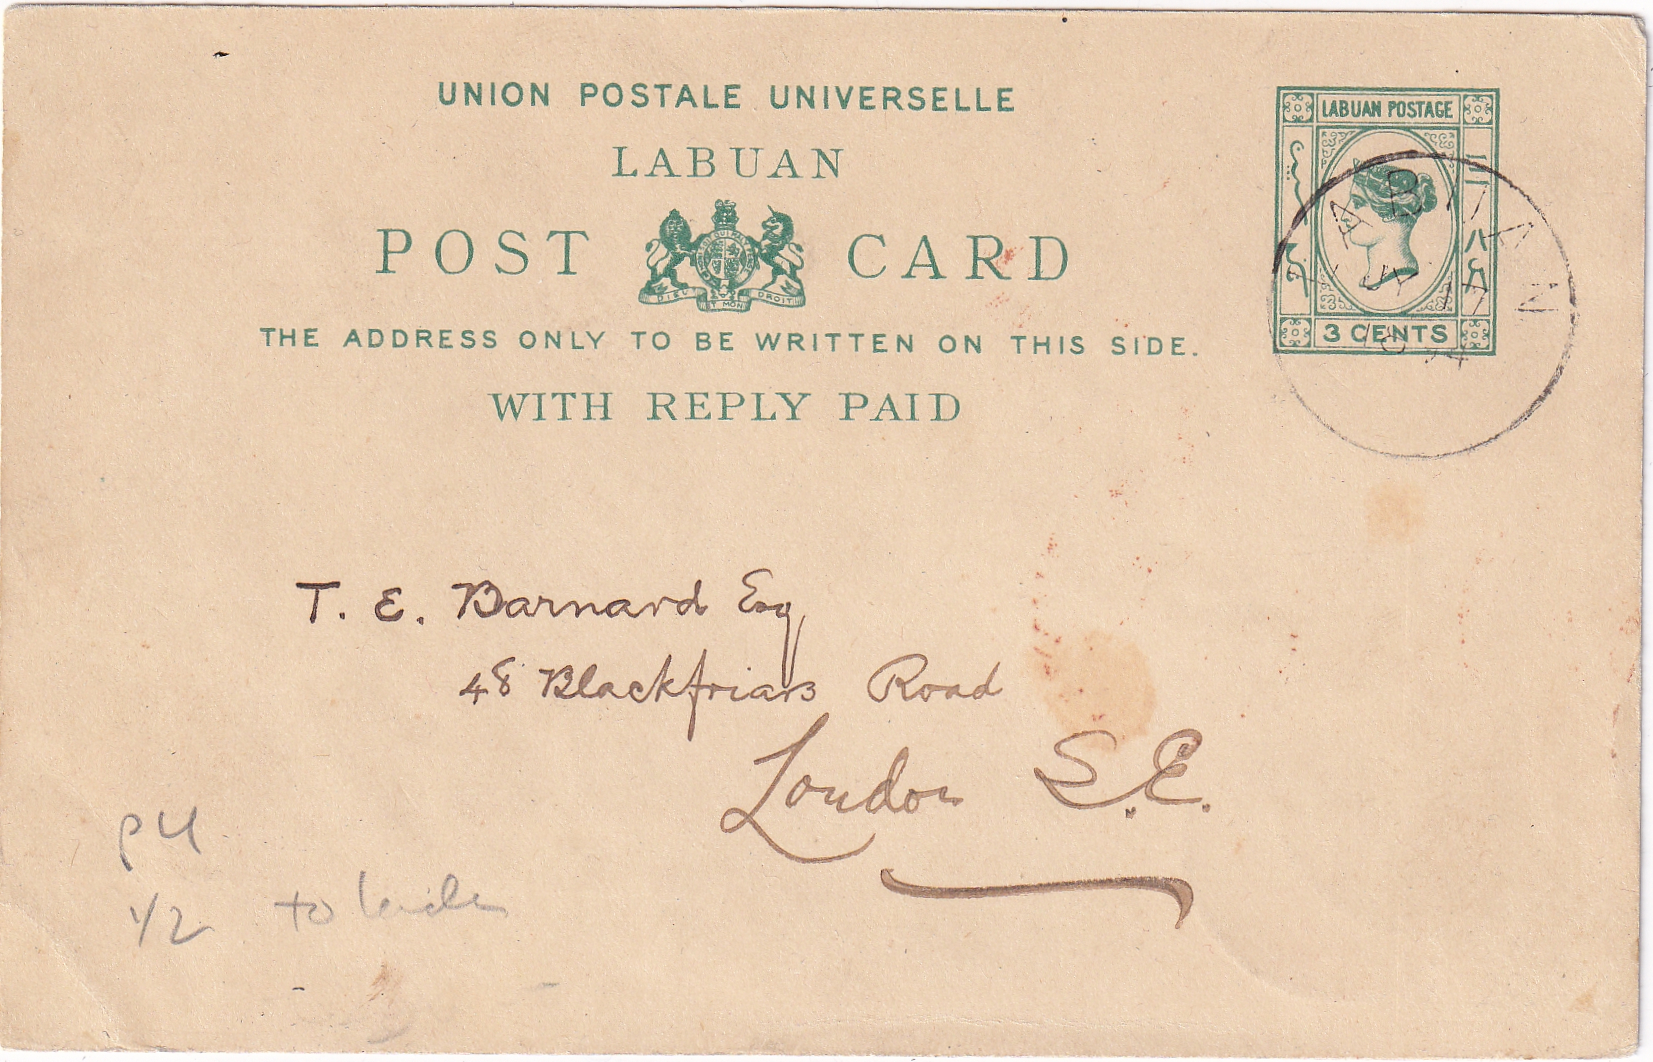 UNION POSTALE UNIVERSELLE
LABUAN
POST CARD
DIEU ET MON DROIT
THE ADDRESS ONLY TO BE WRITTEN ON THIS SIDE.
WITH REPLY PAID
LABUAN POSTAGE
3 CENTS
LABUAN
JY 17
1894
T. E. Barnard Esq
48 Blackfriars Road
London S.E.
P4
1/2 to